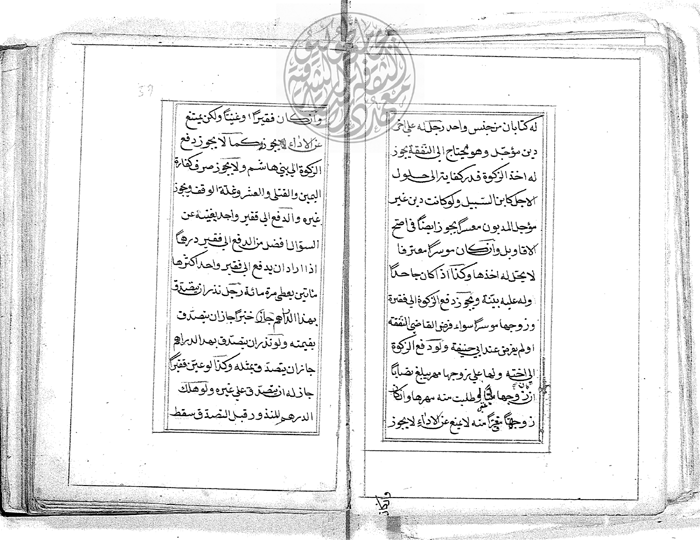 له كتابان من جنس واحد رجل له على آخر
دين مؤجل وهو يحتاج الى النفقة يجوز
له اخذ الزكوة قدر كفايته الى حلول
الاجل كابن السبيل ولو كانت دين غير
مؤجل المديون معسرا يجوز ايضا في اصح
الاقاويل وان كان موسرا معترفا
لا يحل له اخذها وكذا اذا كان جاحدا
وله عليه بينة ويجوز دفع الزكوة الى فقيرة
وزوجها موسرا سواء فرض القاضي النفقة
او لم يفرض عند ابي حنيفة ولو دفع الزكوة
الى اخته ولها على زوجها مهر يبلغ نصابا
زوجها لو طلبت منه مهرها وان كان
زوجها منه لا يمنع عن الاداء لا يجوز
وان كان
وان كان فقيرا او غنيا ولكن يمنع
عن الاداء لا يجوز كما لا يجوز دفع
الزكوة الى بني هاشم ولا يجوز صرف كفارة
اليمين والقتلى والعشر وغلة الوقف ويجوز
غيره والدفع الى فقير واحد يغنيه عن
السؤال افضل من الدفع الى فقير درهما
اذا اراد ان يدفع الى فقير واحد اكثرها
مأتين يعطى مرة مائة رجل نذر ان يتصدق
بهذا الدراهم جاز خبزا جاز ان يتصدق
بقيمته ولو نذر ان يتصدق بهذ الدراهم
جاز ان يتصدق بمثله وكذا لو عين فقيرا
جاز له ان يتصدق على غيره ولو هلك
الدرهم للنذور قبل التصدق سقط